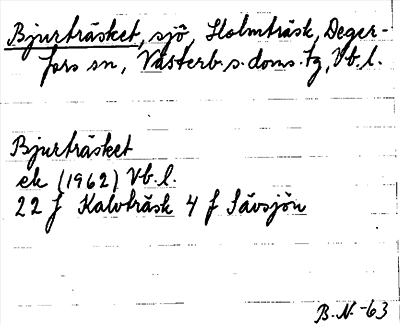 Bjurträsket, sjö, Holmträsk, Deger-
fors sn, Västerb. s. doms. tg, Vb. l.
Bjurträsket
ek (1962) Vb. l.
22 f Kalvträsk 4 f Sävsjön
B. N. -63